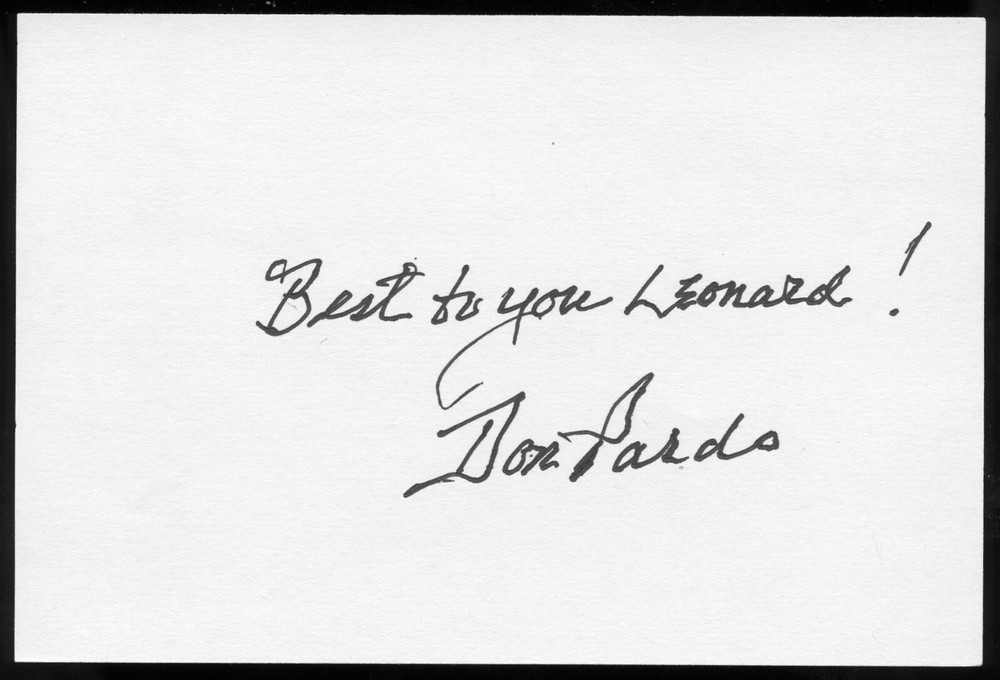 Best to you Leonard!
Don Pardo